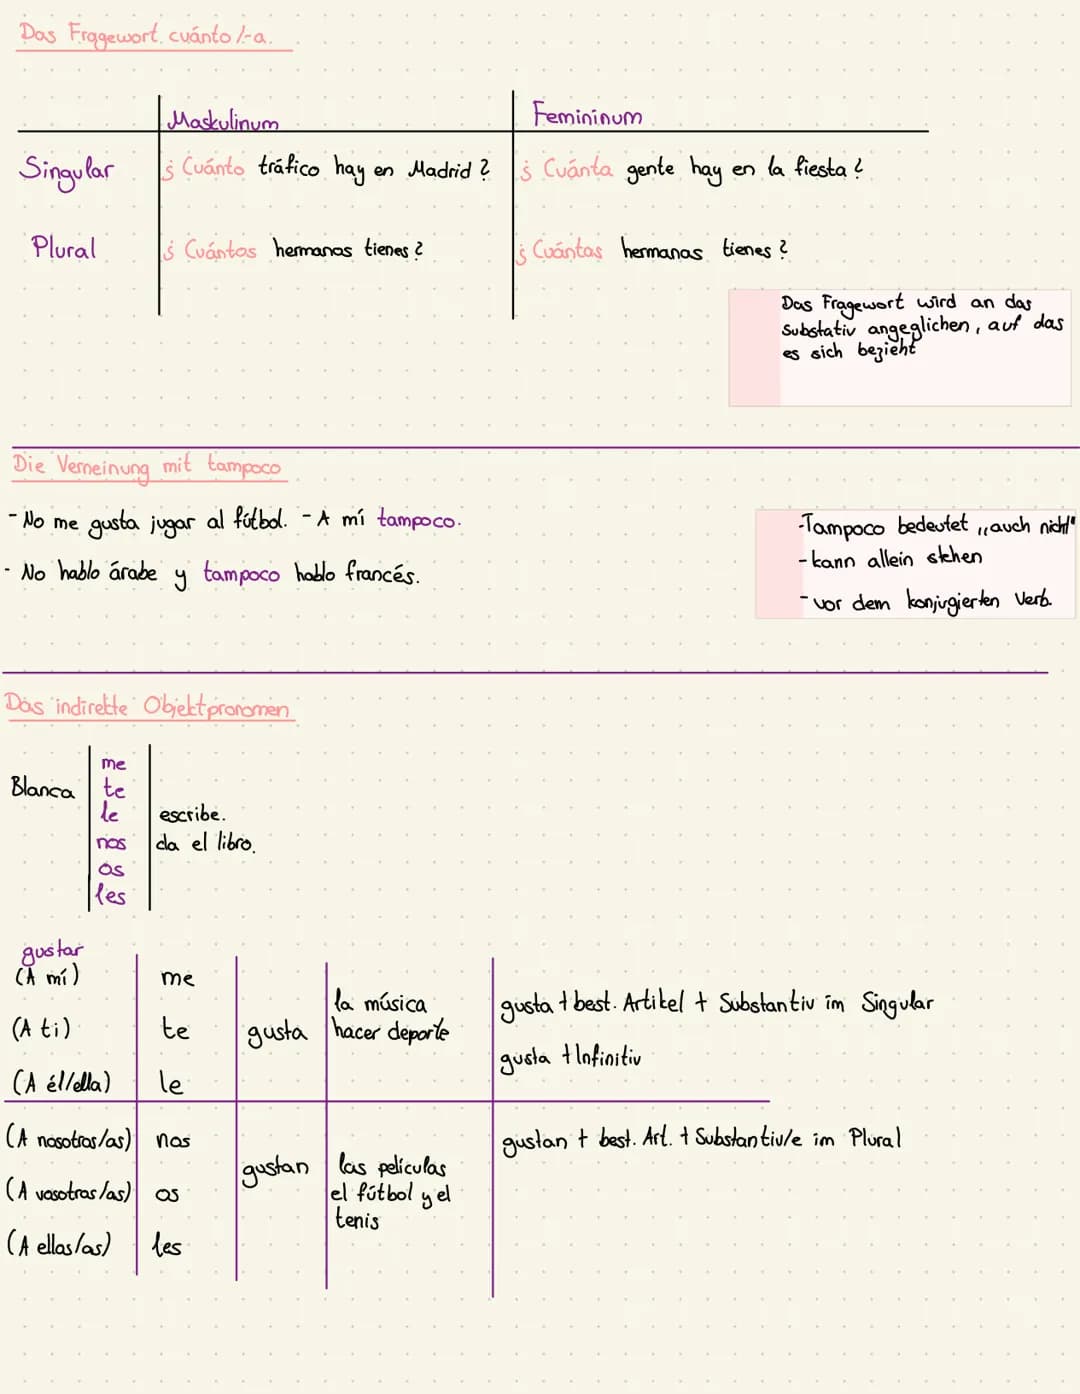 Das Fragewort cuánto/-a.
Maskulinum
Femininum
Singular
¿Cuánto tráfico hay en Madrid?
¿Cuánta gente hay en la fiesta?
Plural
¿Cuántos hermanos tienes?
¿Cuántas hermanas tienes?
Das Fragewort wird an das
Substativ angeglichen, auf das
es sich bezieht
Die Verneinung mit tampoco
- No me gusta jugar al fútbol. - A mí tampoco.
- No hablo árabe y tampoco hablo francés.
- Tampoco bedeutet „auch nicht"
- kann allein stehen
- vor dem konjugierten Verb.
Das indirekte Objektpronomen
Blanca
me
te
le
nos
os
les
escribe.
da el libro.
gustar
(A mí)
me
(A ti)
te
(A él/ella)
le
gusta
la música
hacer deporte
gusta + best. Artikel + Substantiv im Singular
gusta + Infinitiv
(A nosotros/as)
nos
(A vosotros/as)
os
(A ellos/as)
les
gustan
las películas
el fútbol y el
tenis
gustan + best. Art. + Substantiv/e im Plural